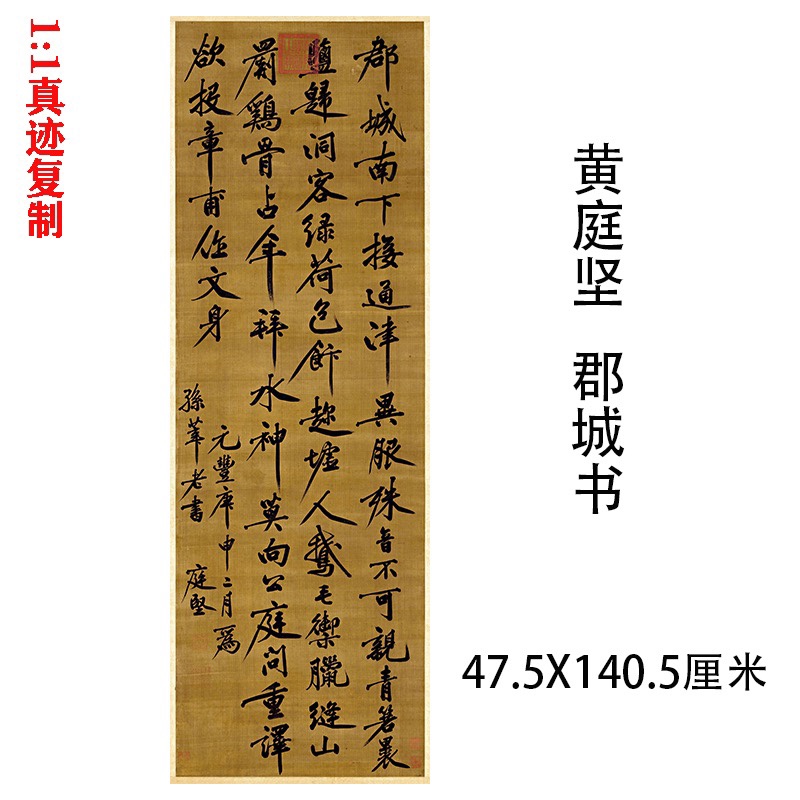 1:1真迹复制
郡城南下接通津異服殊音不可親青箬裹
鹽歸洞客緑荷包飰趂墟人鵞毛禦臘縫山
罽鷄骨占年拜水神莫向公庭問重譯
欲投章甫作文身
元豐庚申二月為
孫莘老書 庭堅
黄庭坚 郡城书
47.5X140.5厘米